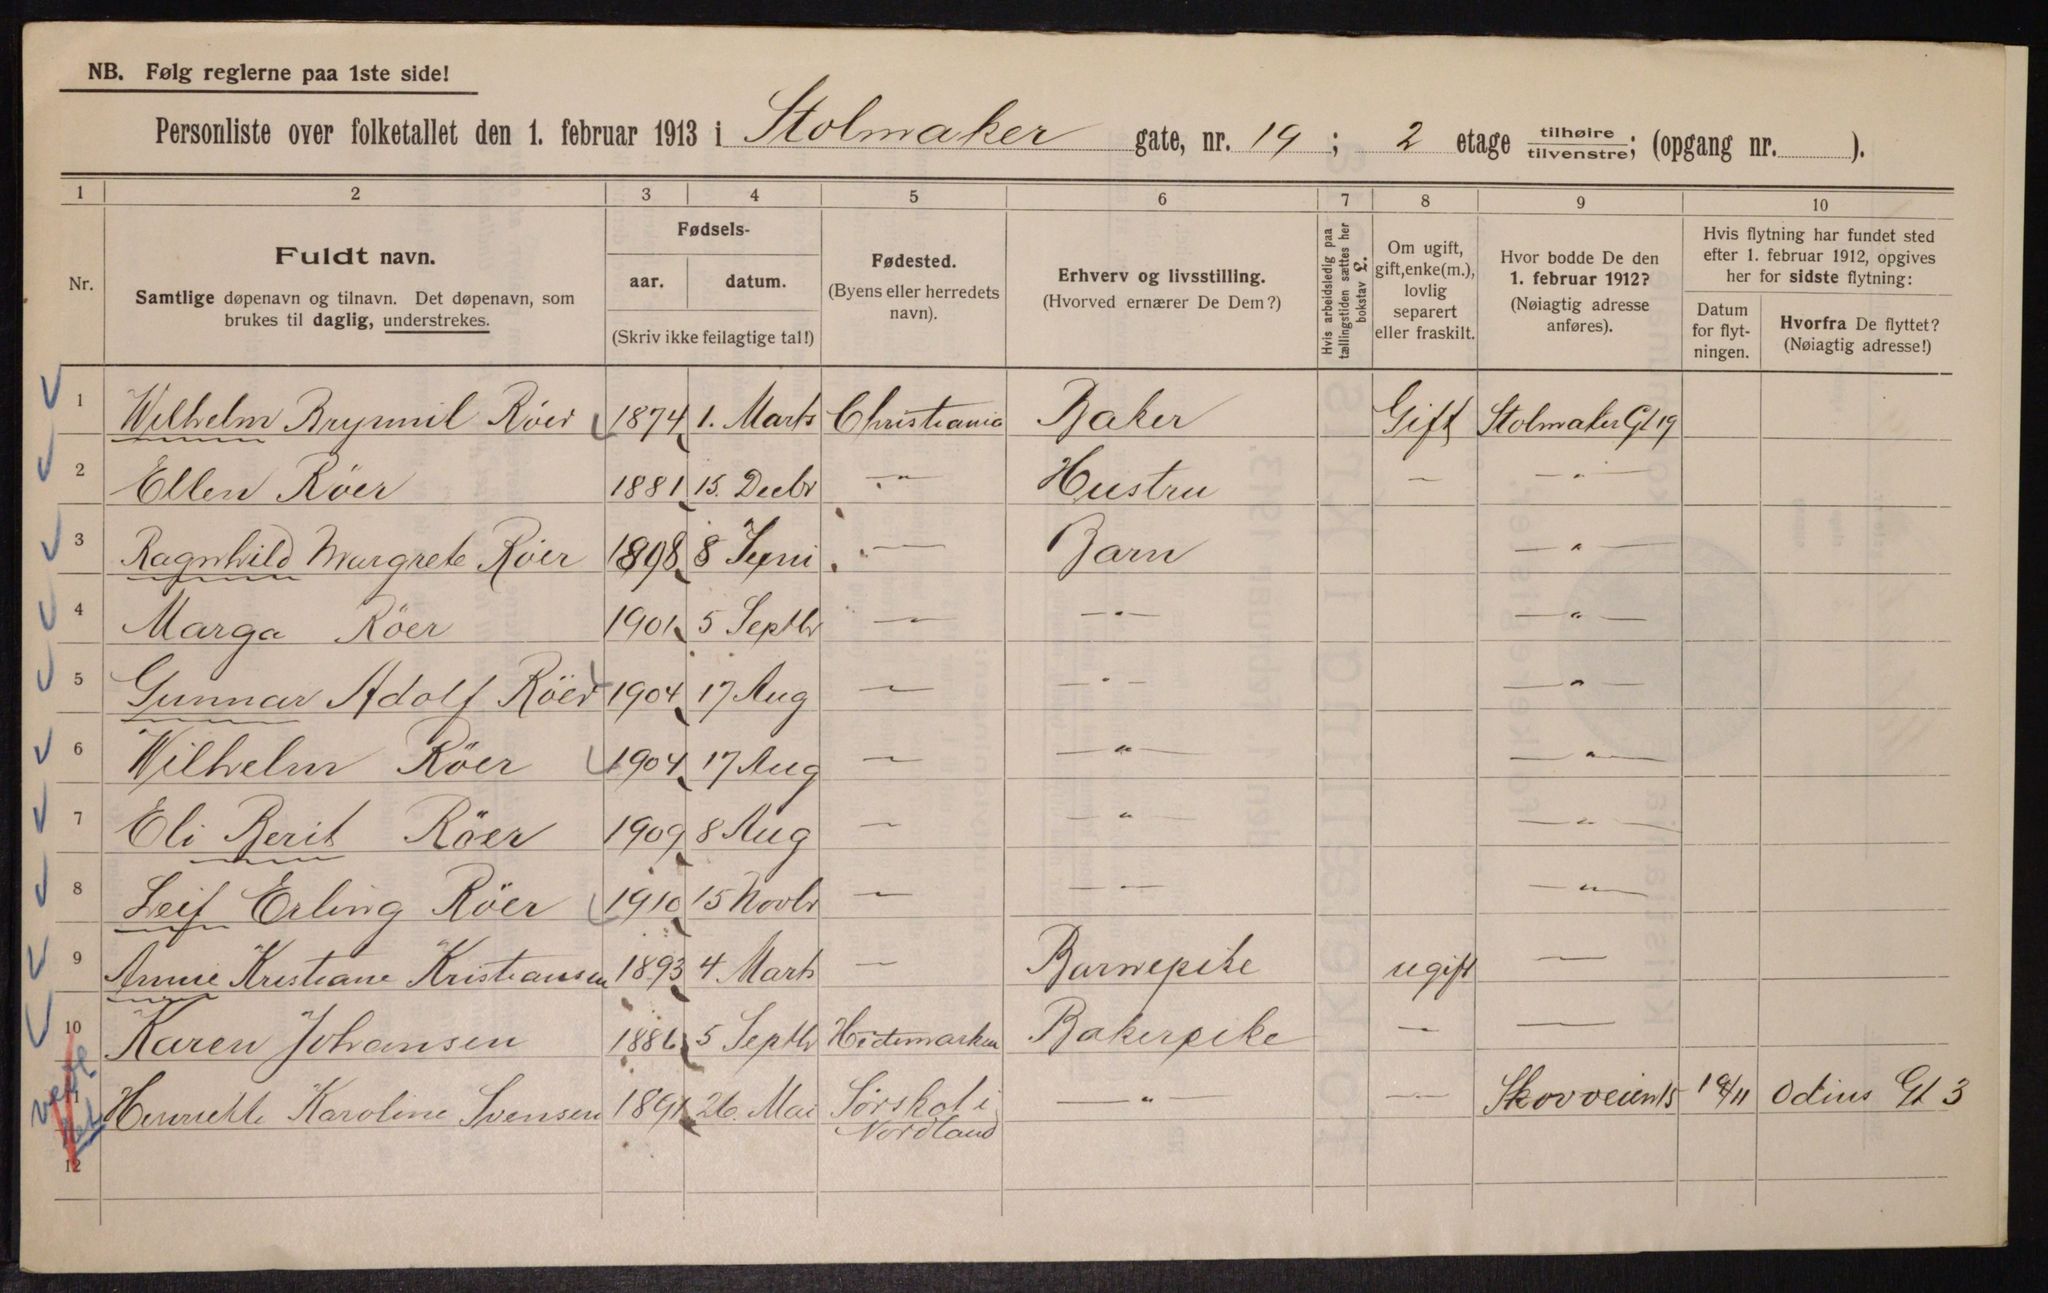 NB. Følg reglerne paa 1ste side!
Personliste over folketallet den 1. februar 1913 i Stolmaker gate, nr. 19; 2 etage tilhøire/tilvenstre; (opgang nr. ).
1 2 3 4 5 6 7 8 9 10
Nr.
Fuldt navn.
Samtlige døpenavn og tilnavn. Det døpenavn, som
brukes til daglig, understrekes.
Fødsels-
aar. datum.
(Skriv ikke feilagtige tal!)
Fødested.
(Byens eller herredets
navn).
Erhverv og livsstilling.
(Hvorved ernærer De Dem?)
Hvis arbeidsledig paa
tællingstiden sættes her
bokstav L.
Om ugift,
gift, enke(m.),
lovlig
separert
eller fraskilt.
Hvor bodde De den
1. februar 1912?
(Nøiagtig adresse
anføres).
Hvis flytning har fundet sted
efter 1. februar 1912, opgives
her for sidste flytning:
Datum
for flyt-
ningen.
Hvorfra De flyttet?
(Nøiagtig adresse!)
1 Wilhelm Brynnil Röer 1874 1. Marts Christiania Baker Gift Stolmaker Gt 19
2 Ellen Röer 1881 15. Decbr — " — Hustru — — " —
3 Ragnhild Margrete Röer 1898 8 Juni — " — Barn — " —
4 Marga Röer 1901 5 Septbr — — " — — " —
5 Gunnar Adolf Röer 1904 17 Aug — — " — — " —
6 Wilhelm Röer 1904 17 Aug — — " — — " —
7 Eli Berit Röer 1909 8 Aug — — " — — " —
8 Leif Erling Röer 1910 15 Novbr — — " — — " —
9 Annie Kristiane Kristiansen 1893 4 Marts — Barnepike ugift —
10 Karen Johansen 1886 5 Septbr Hedemarken Bakerpike — —
11 Henriette Karoline Svensen 1891 26. Mai Sørskot i — " — — Skovveien 15 19/11 Odins Gt 3
Nordland
12